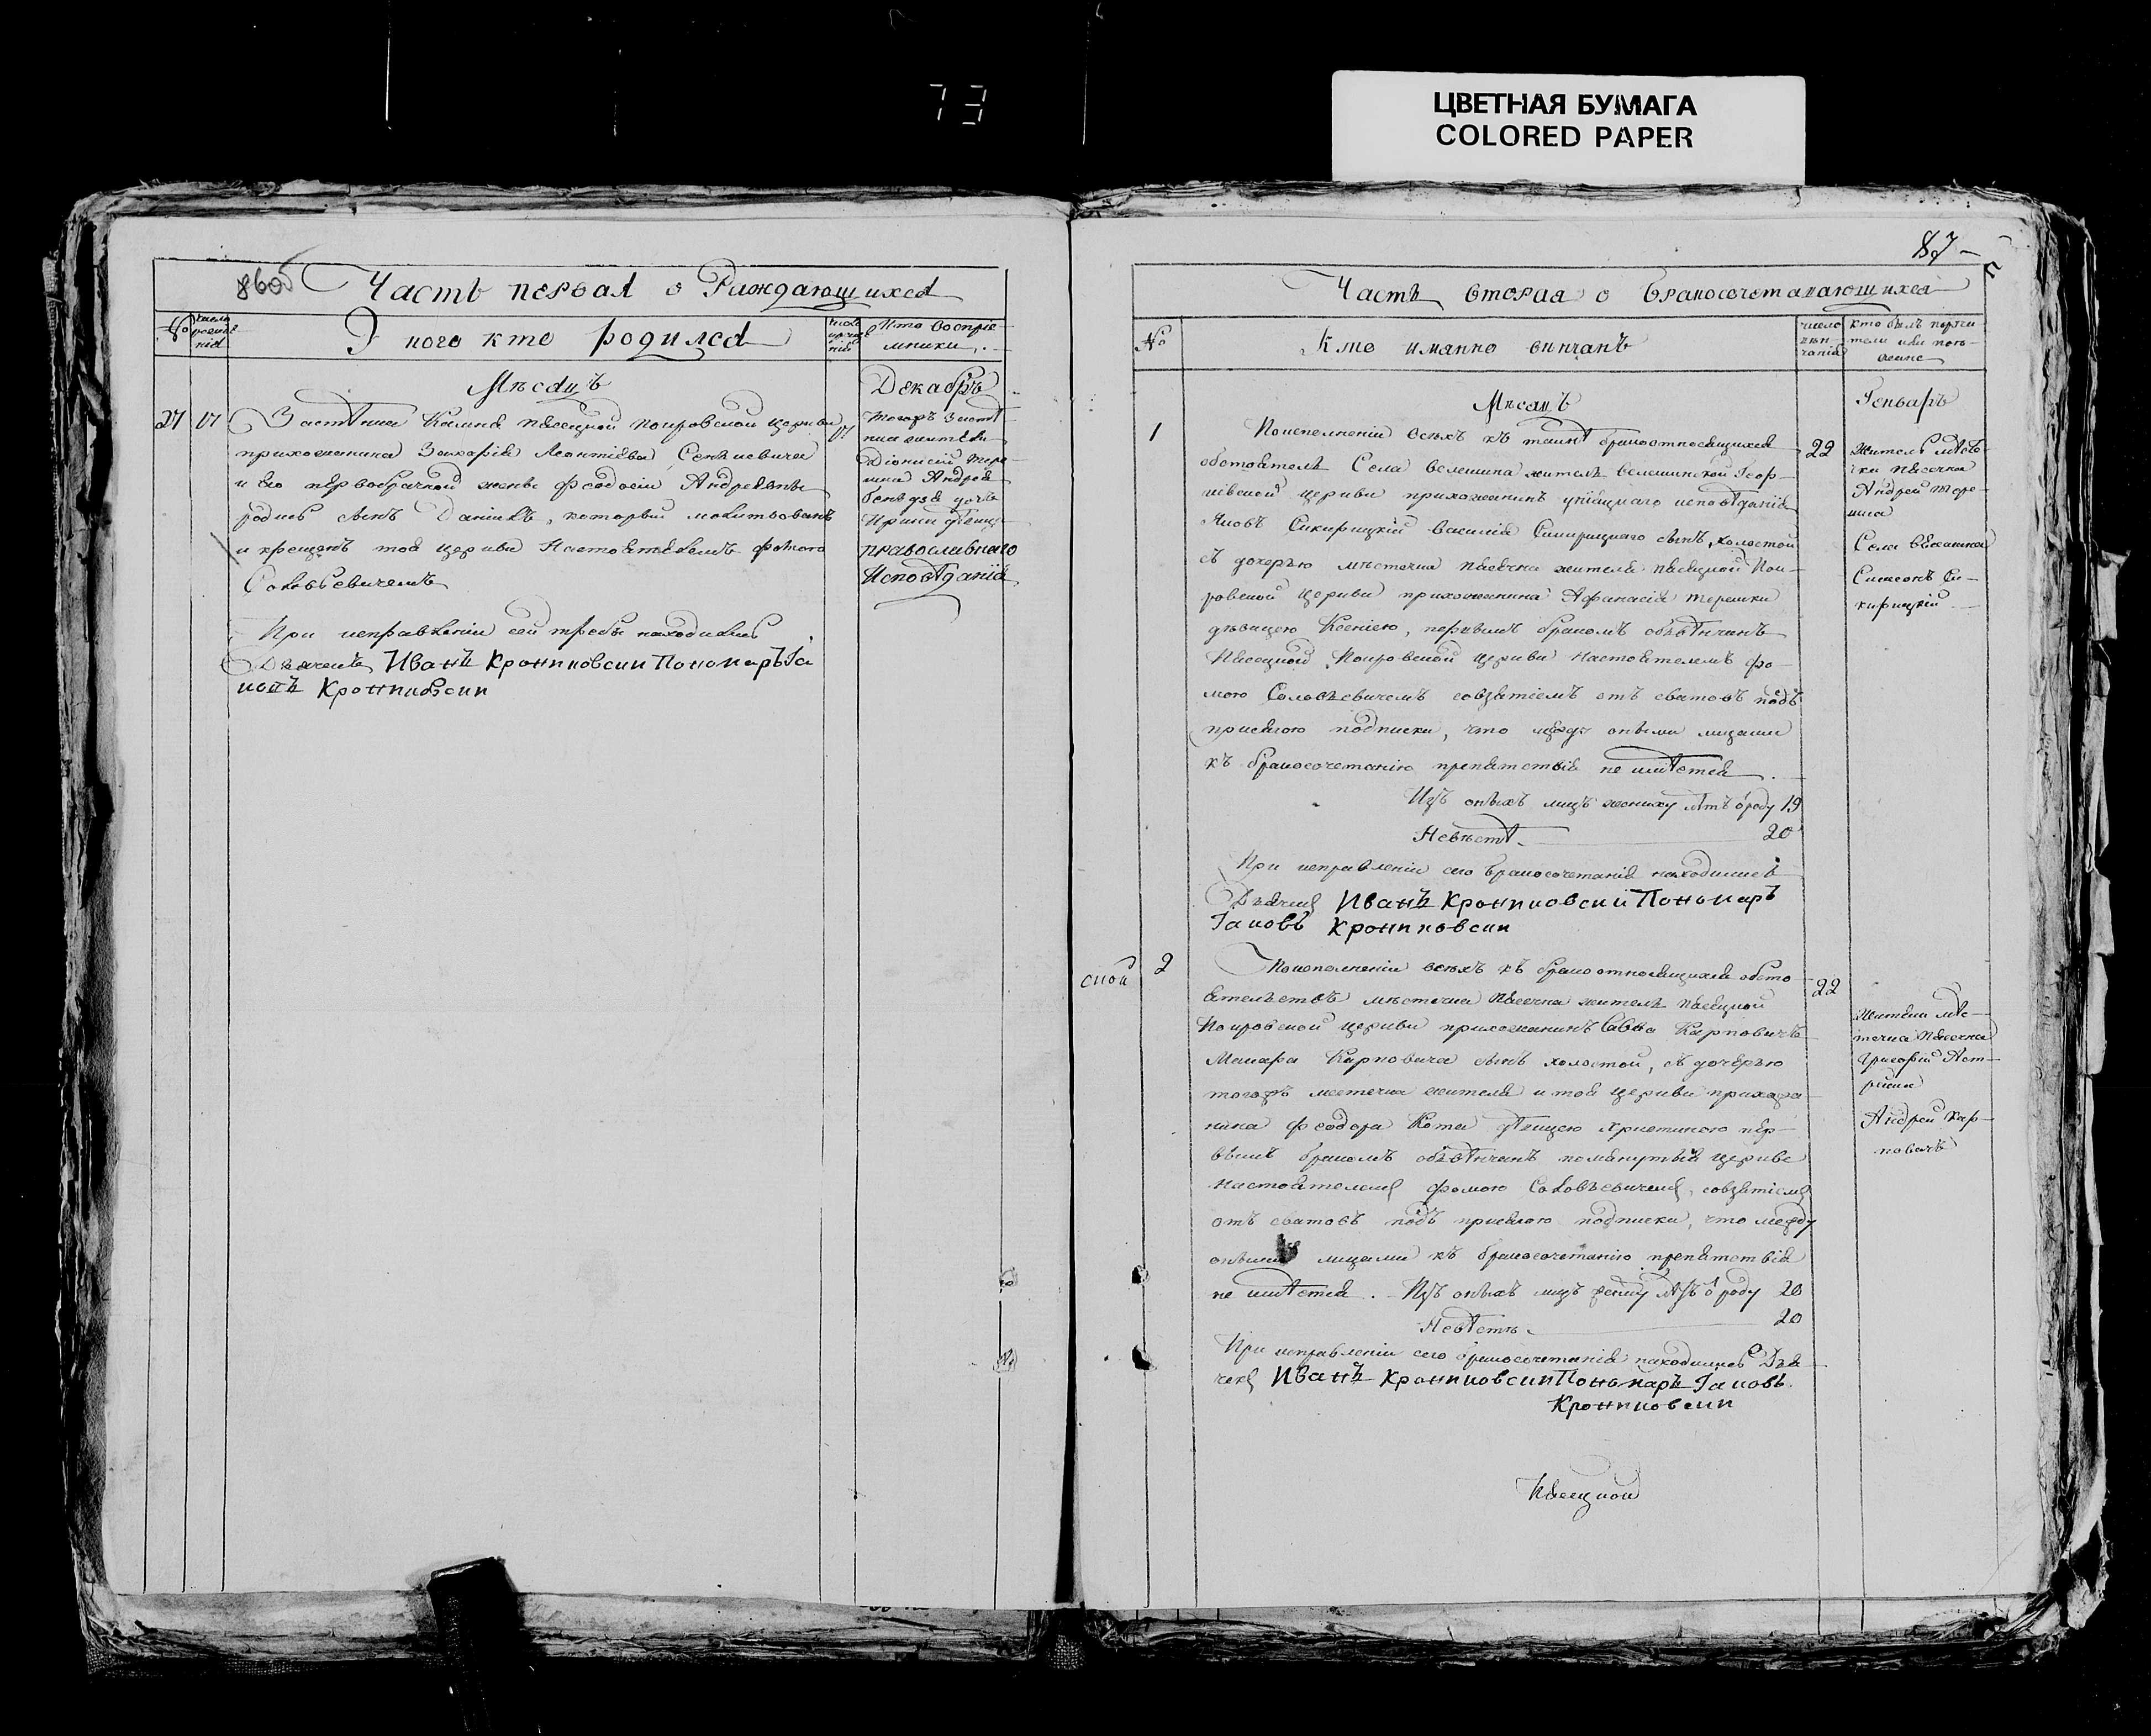 73
ЦВЕТНАЯ БУМАГА
COLORED PAPER
86об
Часть первая о Раждающихся
№ число рожденія
У кого кто родился
Кто воспріемники
Мѣсяцъ
Декабрь
27 17
Застѣнка Калина Пясецкой Покровской церкви 17
прихожанина Захарія Леонтіева Сенкевича
и его первобрачной жены Феодосіи Андреевны
родися сынъ Даніилъ, который молитвованъ
и крещенъ тоя церкви Настоятелемъ Фомою
Соловьевичемъ
При исправленіи сей требы находились
Дьячекъ Иванъ Крониковски Пономаръ Іа
ковъ Крониковски
тогожъ застѣ
нка жители
Діонисій Тере
шка Андрея
дочь
Ирина дѣвица
православнаго
Исповѣданія
87
Часть вторая о бракосочетавающихся
№
Кто имянно винчанъ
число вѣнчанія
кто былъ поручители или поезжане
Мѣсяцъ
Генваръ
1
По исполненіи всѣхъ къ таинѣ брака относящихся
обстоятелъ Села Велешина житель Велешинской Геор-
гіевской церкви прихожанинъ уніяцкаго исповѣданія
Яковъ Сикирицкій Василія Сикирицкаго сынъ, холостой
съ дочерью мѣстечка Пясечна жителя Пясецкой Пок-
ровской церкви прихожанина Афанасія Терешки
дѣвицею Ксеніею, первымъ бракомъ обвѣнчанъ
Пясецкой Покровской церкви Настоятелемъ Фо-
мою Соловьевичемъ совзятіемъ отъ сватовъ подъ
присягою подписки, что между оными лицами
къ бракосочетанію препятствія не имѣется.
Изъ оныхъ лицъ жениху лѣтъ ѿроду 19
Невѣстѣ 20
При исправленіи сего бракосочетанія находились
Дьячекъ Иванъ Крониковски Пономаръ
Іаковъ Крониковски
22
Житель мѣсте
чка Пясечна
Андрей Тере-
шка
Села Велешина
Симеонъ Си-
кирицкій
ской
2
По исполненіи всѣхъ къ браку относящихся обсто-
ятельствъ мѣстечка Пясечна житель Пясецкой
Покровской церкви прихожанинъ Савва Карповичъ
Макара Карповича сынъ холостой, съ дочерью
тогожъ местечка жителя и тоя церкви прихожа-
нина Феодора Кота дѣвицею Христиною пер-
вымъ бракомъ обвѣнчанъ помянутыя церкви
Настоятелемъ Фомою Соловьевичемъ, совзятіемъ
отъ сватовъ подъ присягою подписки, что между
оными лицами къ бракосочетанію препятствія
не имѣется. Изъ оныхъ лицъ жениху лѣтъ ѿроду 20
Невѣстѣ 20
При исправленіи сего бракосочетанія находились Дья
чекъ Иванъ Крониковски Пономаръ Іаковъ
Крониковски
22
Жители мѣс-
течка Пясечна
Григорій
Андрей Кар-
повичъ
Пясецкой